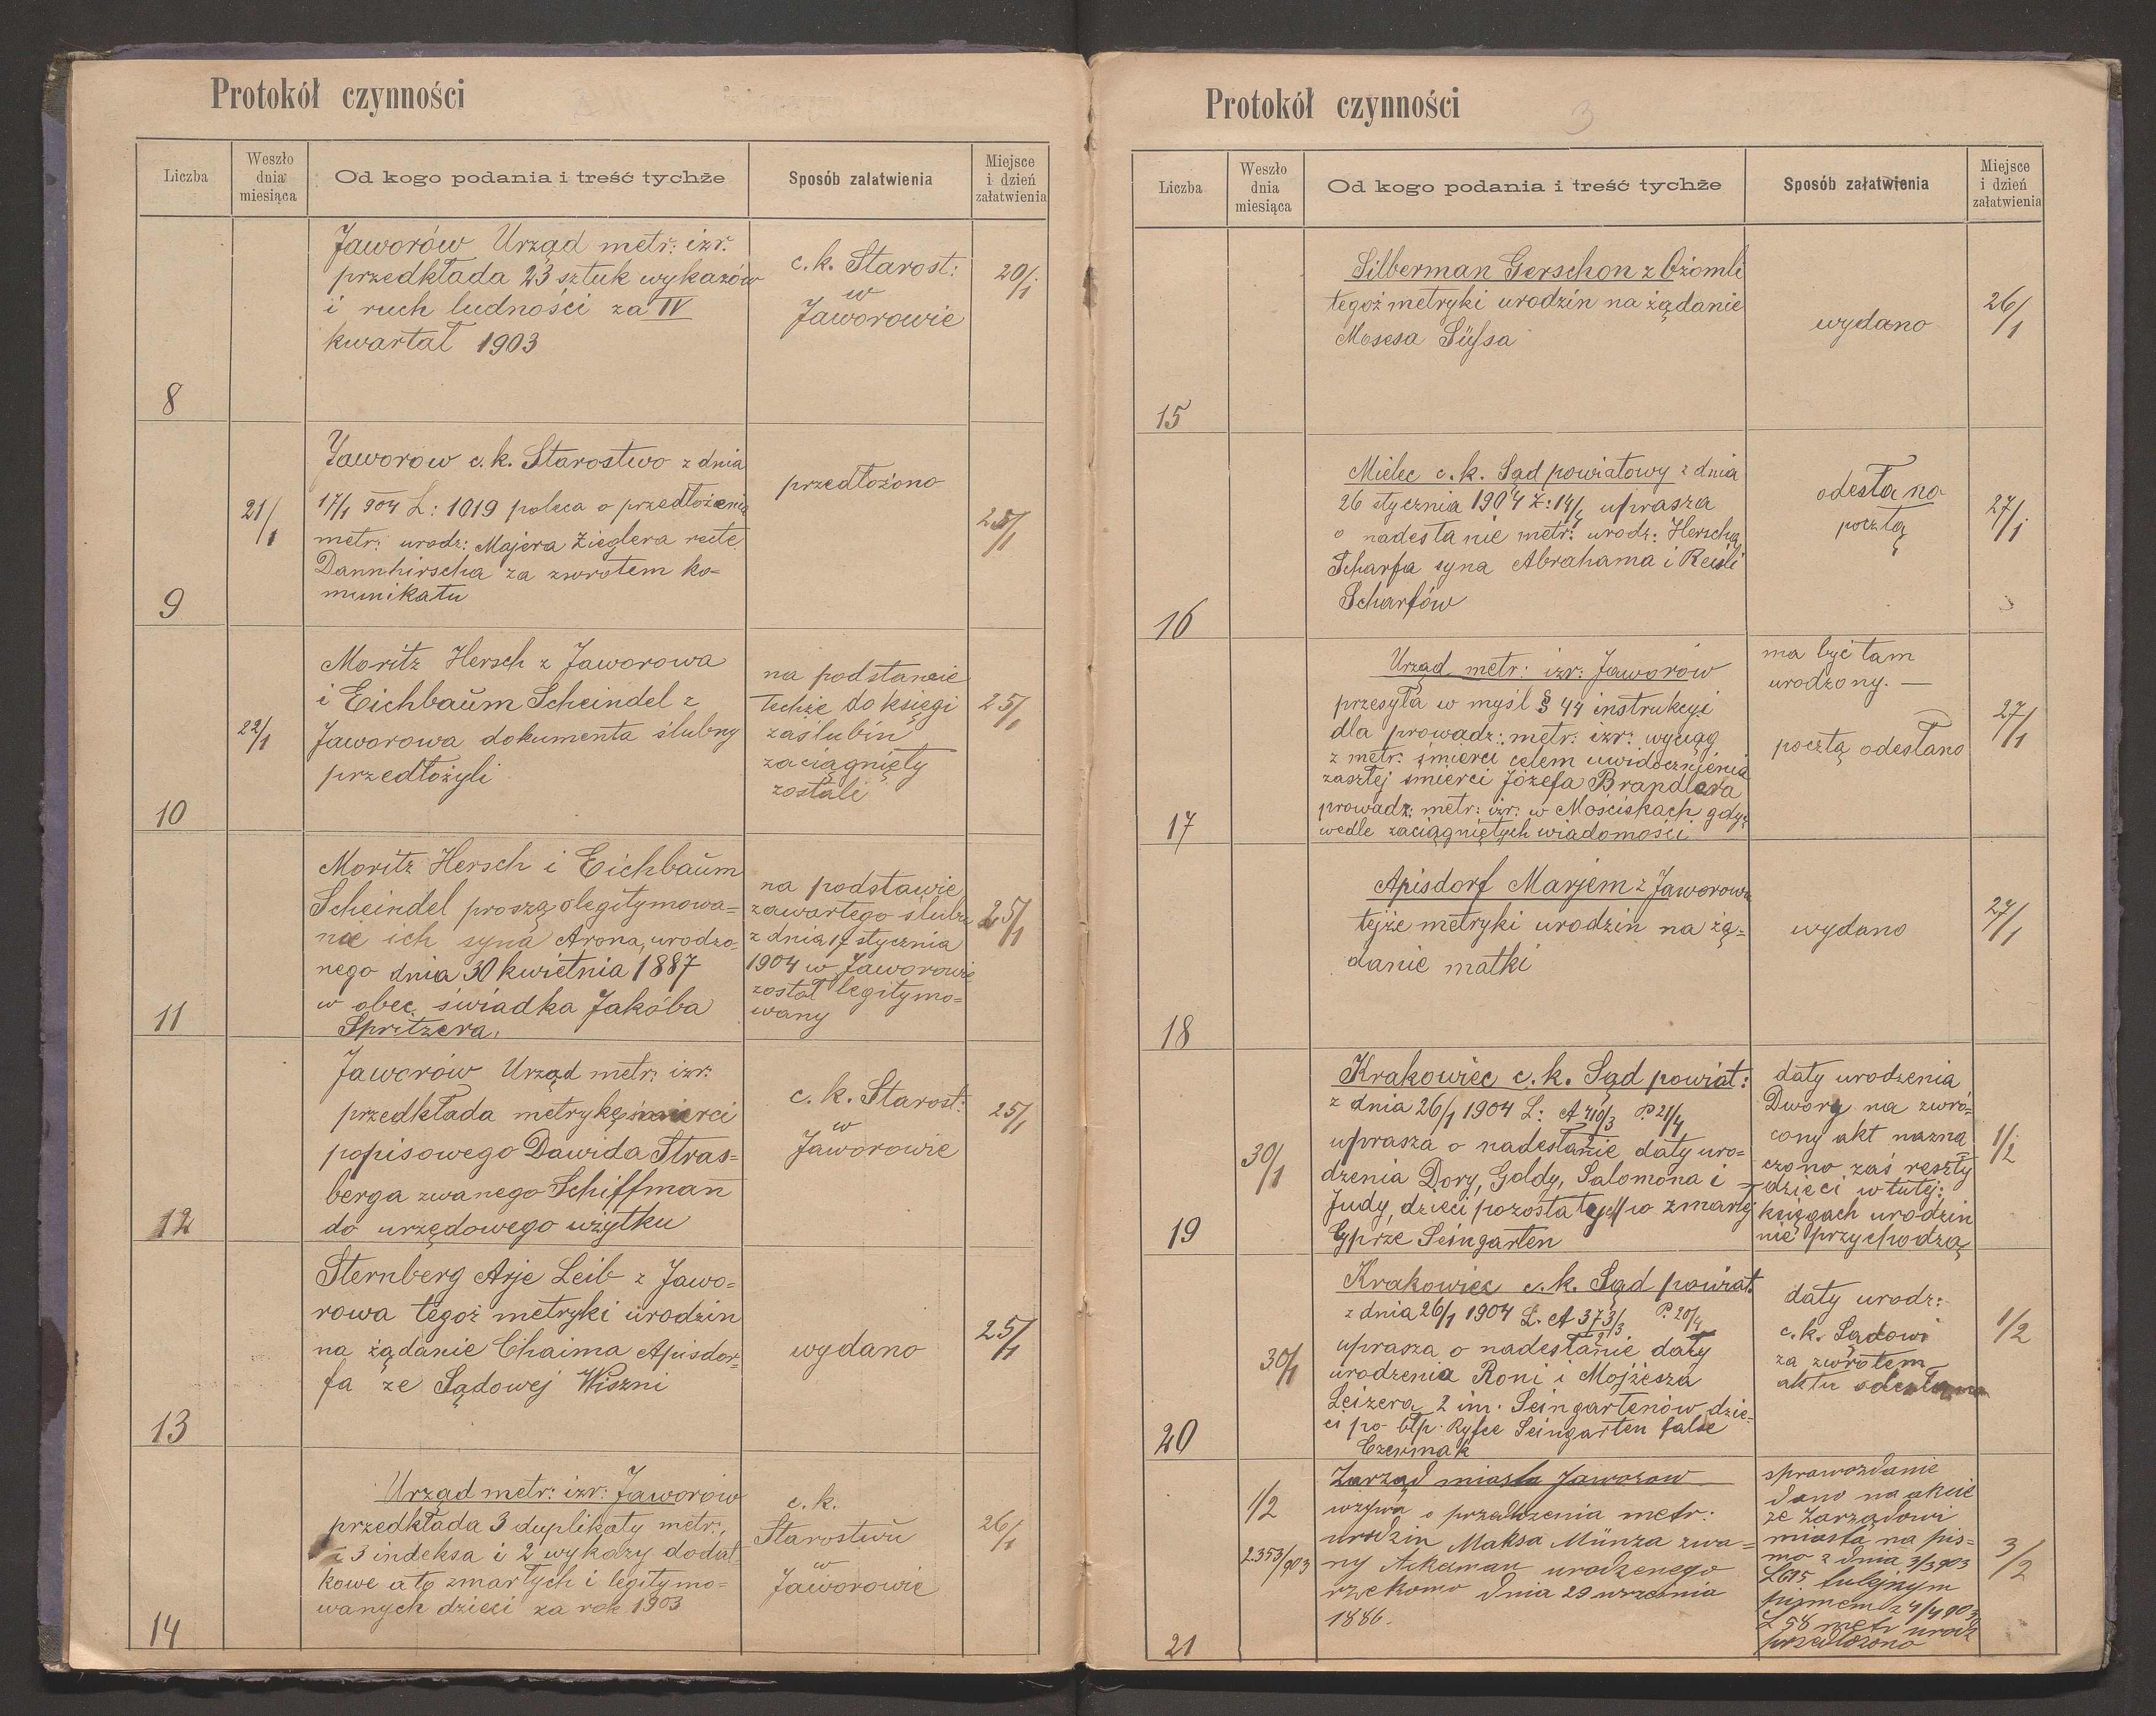 Protokół czynności
Liczba
Weszło dnia miesiąca
Od kogo podania i treść tychże
Sposób załatwienia
Miejsce i dzień załatwienia
8
Jaworów Urząd metr: izr:
przedkłada 23 sztuk wykazów
i ruch ludności za IV
kwartał 1903
c.k. Starost:
w
Jaworowie
20/1
9
21/1
Jaworow c.k. Starostwo z dnia
17/1 904 L: 1019 poleca o przedłożenie
metr: urodz: Majera Zieglera recte
Dannhirscha za zwrotem ko-
munikatu
przedłożono
25/1
10
22/1
Moritz Hersch z Jaworowa
i Eichbaum Scheindel z
Jaworowa dokumenta ślubny
przedłożyli
na podstawie
techże do księgi
zaślubin
zaciągnięty
zostali
25/1
11
Moritz Hersch i Eichbaum
Scheindel proszą o legitymowa-
nie ich syna Arona, urodzo-
nego dnia 30 kwietnia 1887
w obec świadka Jakóba
Spritzera.
na podstawie
zawartego ślubu
z dnia 17 stycznia
1904 w Jaworowie
został legitymo-
wany
25/1
12
Jaworów Urząd metr: izr:
przedkłada metrykę śmierci
popisowego Dawida Stras-
berga zwanego Schiffmann
do urzędowego użytku
c.k. Starost:
w
Jaworowie
25/1
13
Sternberg Arje Leib z Jawo-
rowa tegoż metryki urodzin
na żądanie Chaima Apisdor-
fa ze Sądowej Wiszni
wydano
25/1
14
Urząd metr: izr: Jaworów
przedkłada 3 duplikaty metr:,
i 3 indeksa i 2 wykazy dodat
kowe a to zmarłych i legitymo-
wanych dzieci za rok 1903
c.k.
Starostwu
w
Jaworowie
26/1
Protokół czynności
3
Liczba
Weszło dnia miesiąca
Od kogo podania i treść tychże
Sposób załatwienia
Miejsce i dzień załatwienia
15
Silberman Gerschon z Ożomli
tegoż metryki urodzin na żądanie
Mosesa Süssa
wydano
26/1
16
Mielec c.k. Sąd powiatowy z dnia
26 stycznia 1904 uprasza
o nadesłanie metr: urodz: Herscha
Scharfa syna Abrahama i Reisli
Scharfów
odesłano
pocztą
27/1
17
Urząd metr: izr: Jaworów
przesyła w myśl § 44 instrukcyi
dla prowadz: metr: izr: wyciąg
z metr: śmierci celem uwidocznienia
zaszłej śmierci Józefa Brandlera
prowadz: metr: izr: w Mościskach gdyż
wedle zaciągniętych wiadomości
ma być tam
urodzony. —
pocztą odesłano
27/1
18
Apisdorf Marjem z Jaworowa
tejże metryki urodzin na żą-
danie matki
wydano
27/1
19
30/1
Krakowiec c.k. Sąd powiat:
z dnia 26/1 1904 L: A 410/3 P. 21/4
uprasza o nadesłanie daty uro-
dzenia Dory, Goldy, Salomona i
Judy, dzieci pozostałych po zmarłej
Cyprze Seingarten
daty urodzenia
Dwory na zwró-
cony akt nazna
czono zaś reszty
dzieci w tutej:
księgach urodzin
nie przychodzą
1/2
20
30/1
Krakowiec c.k. Sąd powiat.
z dnia 26/1 1904 L. A 373/3 P. 20/4
uprasza o nadesłanie daty
urodzenia Roni i Mojżesza
Leizera 2 im. Seingartenów dzie-
ci po błp. Ryfce Seingarten false
Czermak
daty urodz:
c.k. Sądowi
za zwrotem
aktu odesłano
1/2
21
1/2
2353/903
Zarząd miasta Jaworow
wzywa o przedłożenia metr:
urodzin Maksa Münza zwa-
ny Ackerman urodzonego
rzekomo dnia 29 września
1886.
sprawozdanie
dano na akcie
ze Zarządowi
miasta na pis-
mo z dnia 3/3 903
L 615 tutejszym
pismem z 4/4 903
L 58 metr urodz
przedłożono
3/2